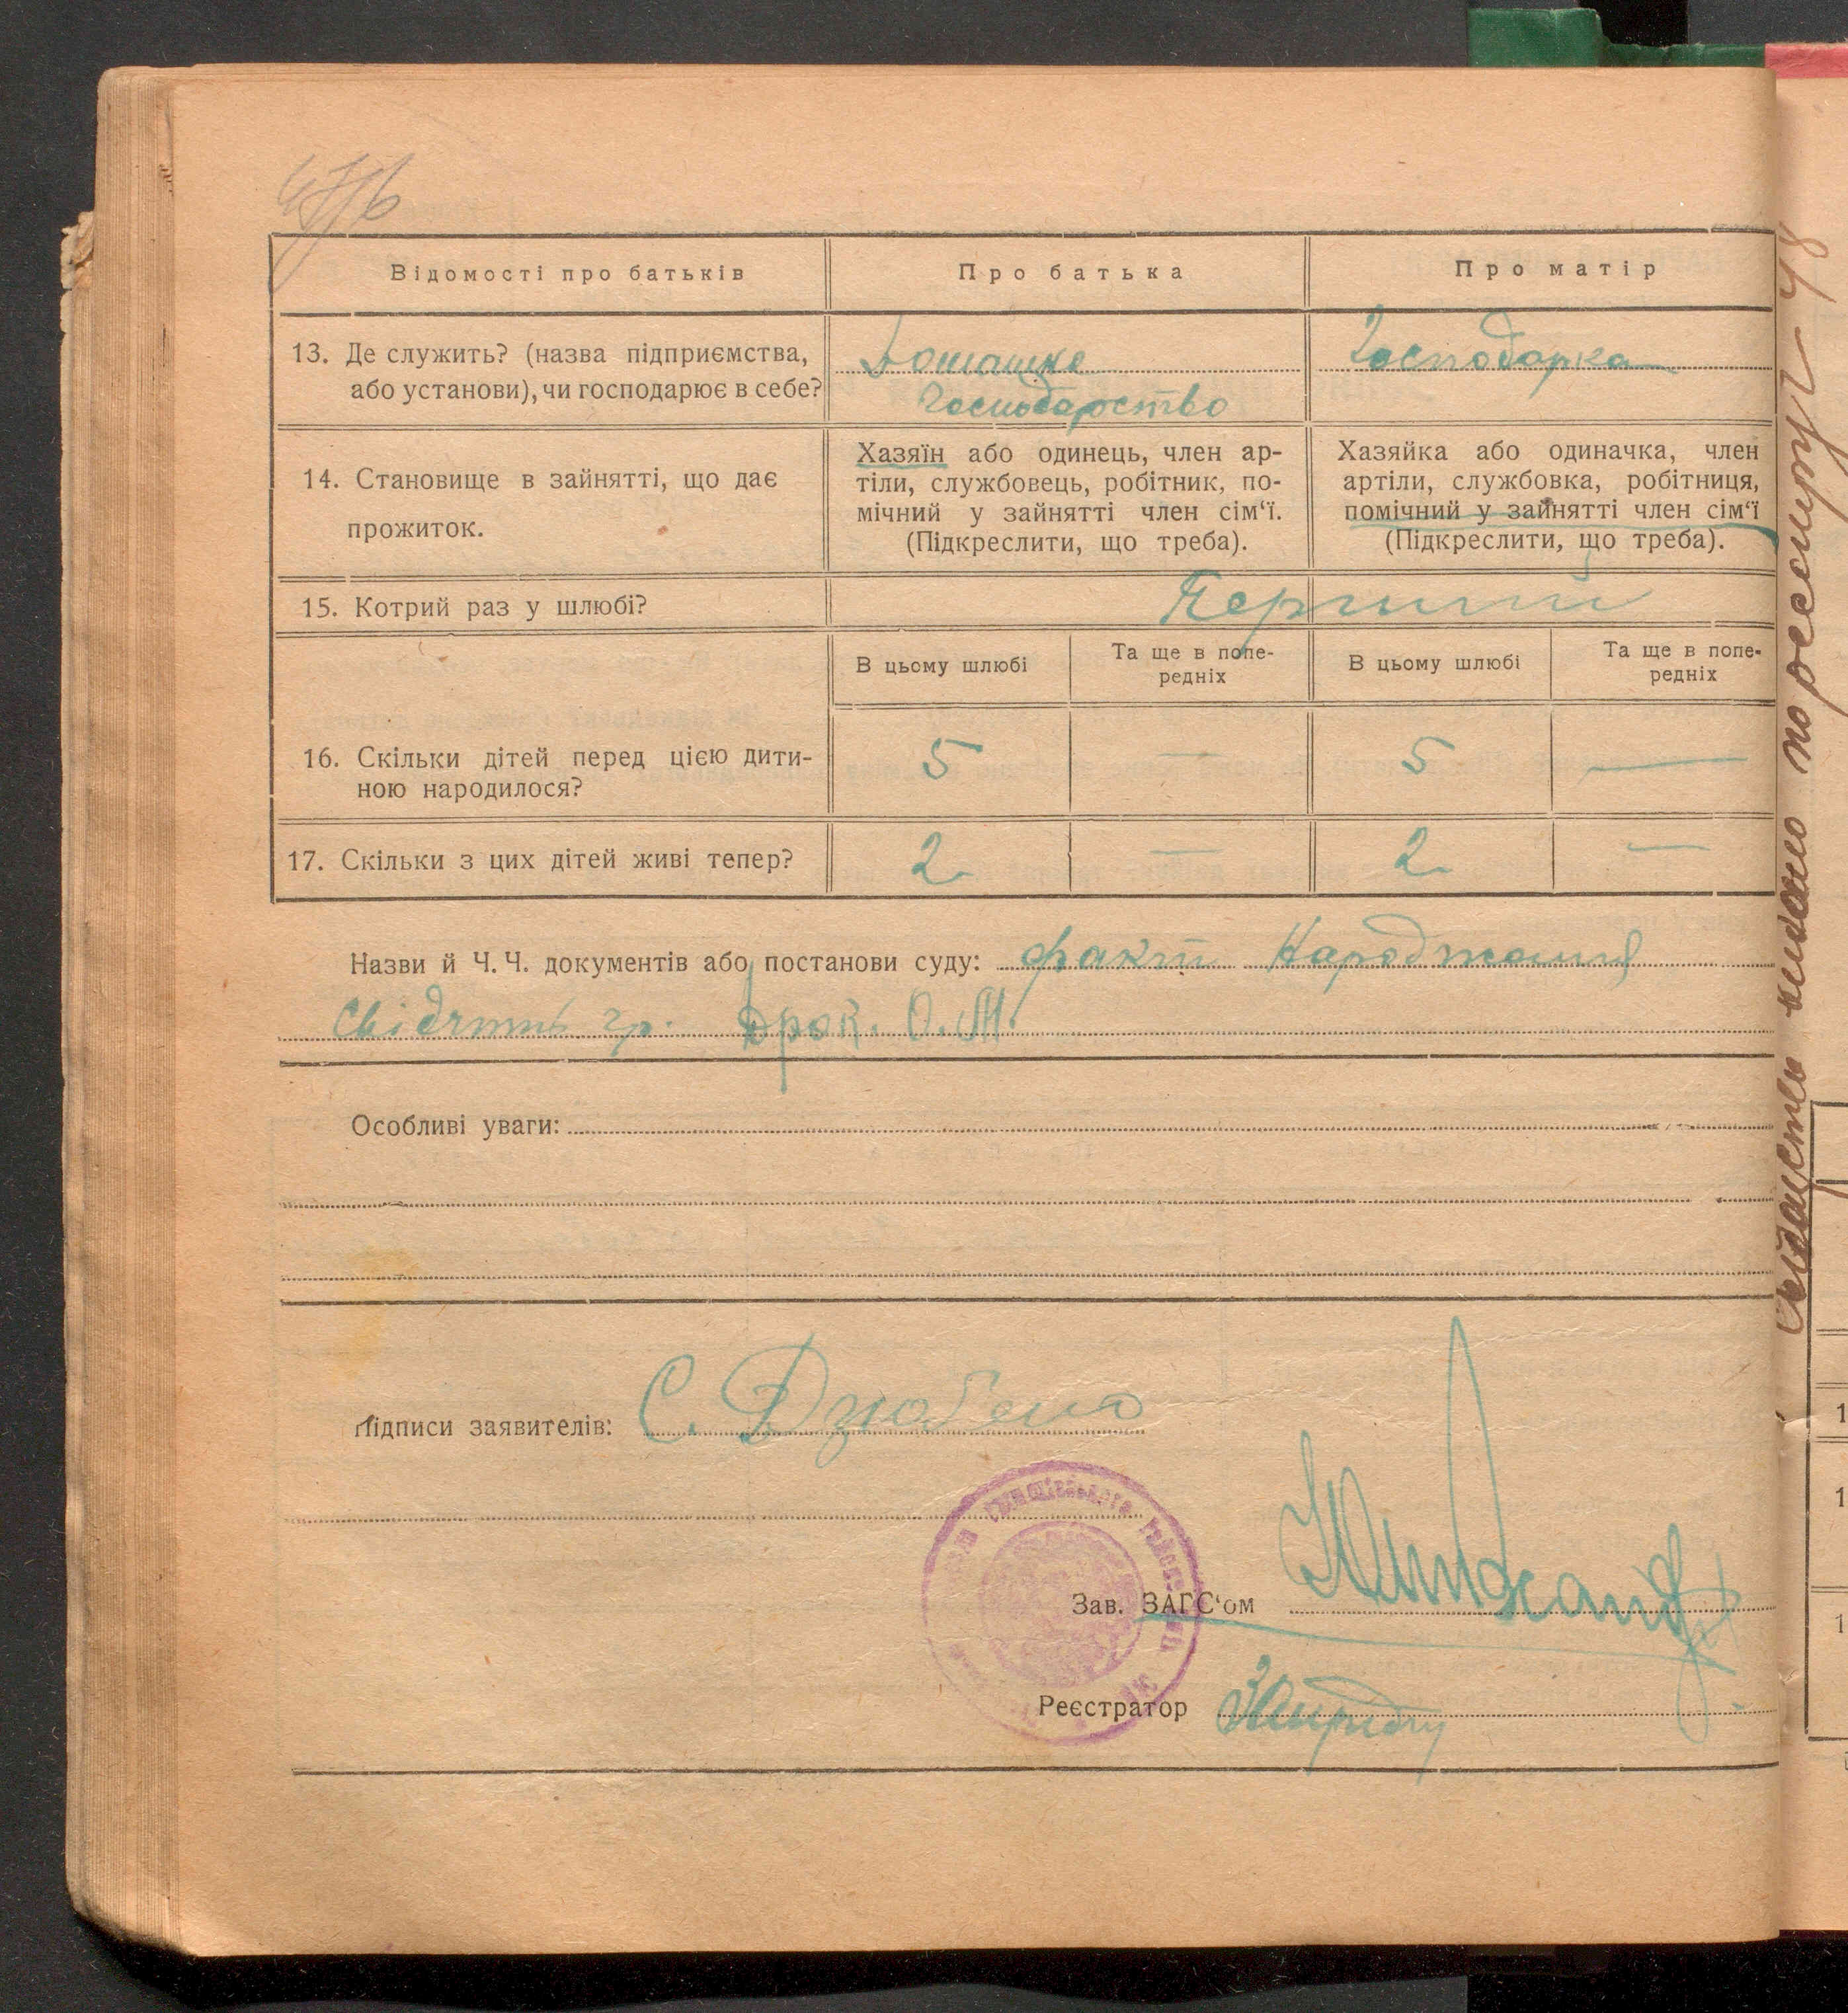 Відомості про батьків
Про батька
Про матір
13. Де служить? (назва підприємства,
або установи), чи господарює в себе?
Домашнє
Господарство
Господарка
14. Становище в зайнятті, що дає
прожиток.
Хазяїн або одинець, член ар-
тіли, службовець, робітник, по-
мічний у зайнятті член сім‘ї.
(Підкреслити, що треба).
Хазяйка або одиначка, член
артіли, службовка, робітниця,
помічний у зайнятті член сім‘ї
(Підкреслити, що треба).
15. Котрий раз у шлюбі?
Перший
В цьому шлюбі
Та ще в попе-
редніх
В цьому шлюбі
Та ще в попе-
редніх
16. Скільки дітей перед цією дити-
ною народилося?
5
—
5
—
17. Скільки з цих дітей живі тепер?
2
—
2
—
Назви й Ч. Ч. документів або постанови суду: факт Народження
свідчить гр. О. М.
Особливі уваги:
Підписи заявителів: С. Дзюбенко
Зав. ЗАГС‘ом
Реєстратор